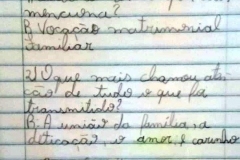 menciona?
R Vocação matrimonial
familiar
2) O que mais chamou aten
ção de tudo o que foi
transmitido?
R: A união da família, a
dedicação, o amor, e carinho